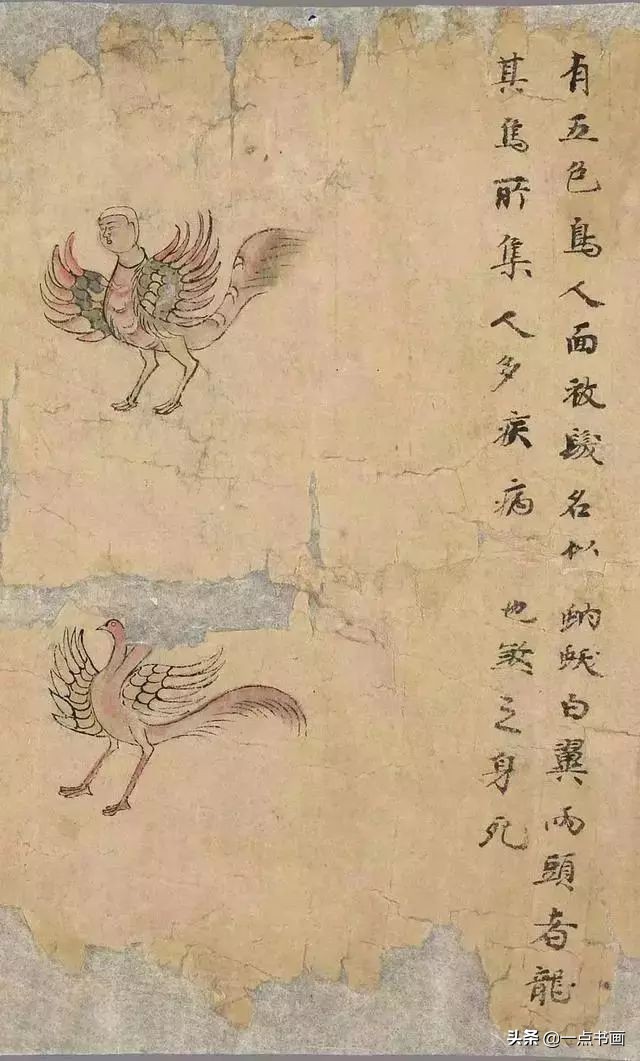 有五色鳥人面被髮名似
其鳥所集人多疾病
蛾白翼兩頭者龍
也煞之身死
头条 @一点书画